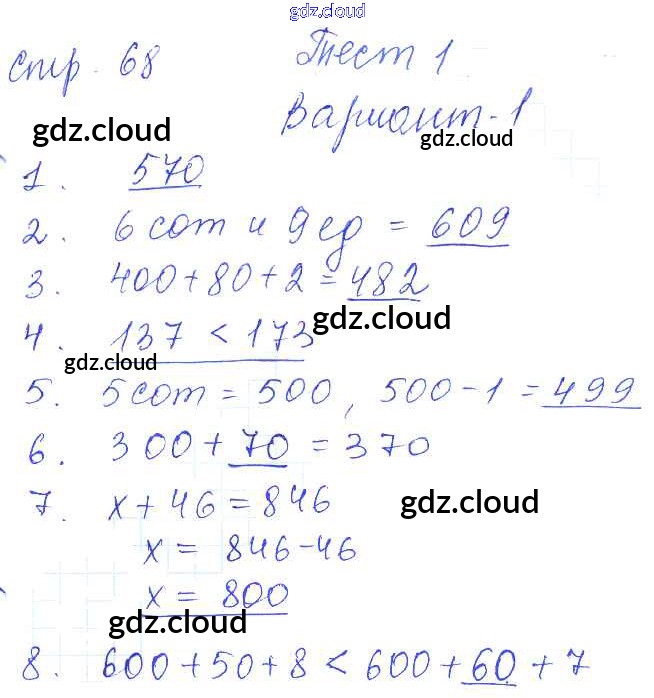 gdz.cloud
стр. 68 Тест 1
Вариант-1
gdz.cloud
gdz.cloud
1. 570
2. 6 сот и 9 ед = 609
3. 400+80+2=482
gdz.cloud
4. 137 < 173
gdz.cloud
5. 5 сот = 500, 500-1=499
6. 300+70=370
7. x+46=846
gdz.cloud
x = 846-46
x = 800
gdz.cloud
8. 600+50+8 < 600+60+7